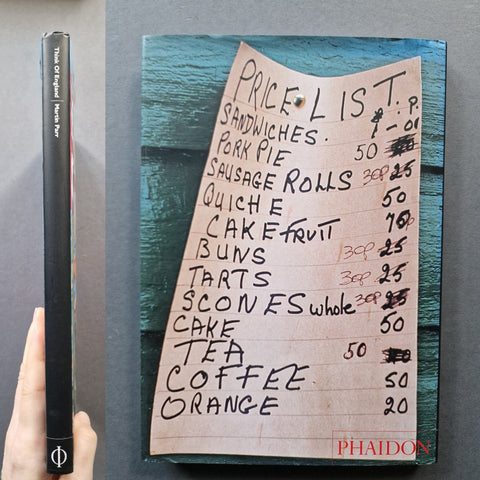 Think Of England | Martin Parr
PRICE LIST.
£ . P.
SANDWICHES. 1 - 01
PORK PIE 50
SAUSAGE ROLLS 30p 25
QUICHE 50
CAKE FRUIT 70
BUNS 30p 25
TARTS 30p 25
SCONES whole 30p 25
CAKE 50
TEA 50
COFFEE 50
ORANGE 20
PHAIDON